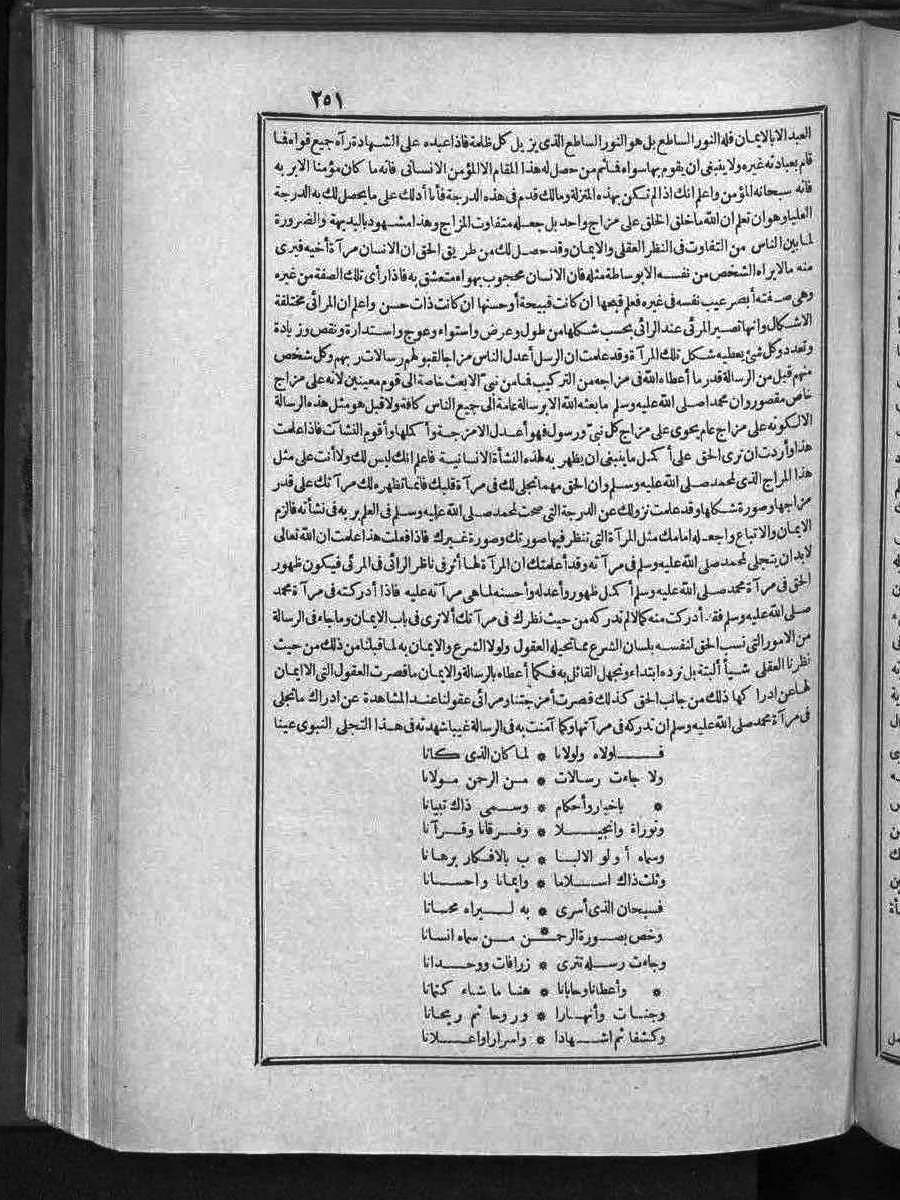 ٢٥١
العبد الا بالايمان فله النور الساطع بل هو النور الساطع الذى يزيل كل ظلمة فاذا عبده على الشهادة رآه جميع قواه فما
قام بعبادته غيره ولا ينبغى ان يقوم بها سواه فما ثم من حصل له هذا المقام الا المؤمن الانسانى فانه ما كان مؤمنا الا بربه
فانه سبحانه المؤمن واعلم انك اذا لم تكن بهذه المنزلة وما لك قدم فى هذه الدرجة فأنا أدلك على ما يحصل لك به الدرجة
العليا وهو ان تعلم ان الله ما خلق الخلق على مزاج واحد بل جعله متفاوت المزاج وهذا مشهود بالبديهة والضرورة
لما بين الناس من التفاوت فى النظر العقلى والايمان وقد حصل لك من طريق الحق ان الانسان مرآة أخيه فيرى
منه ما لا يراه الشخص من نفسه الا بوساطة مثله فان الانسان محجوب بهواه متعشق به فاذا رأى تلك الصفة من غيره
وهى صفته أبصر عيب نفسه فى غيره فعلم قبحها ان كانت قبيحة أو حسنها ان كانت ذات حسن واعلم ان المرائى مختلفة
الاشكال وانها تصير المرئى عند الرائى بحسب شكلها من طول وعرض واستواء وعوج واستدارة ونقص وزيادة
وتعدد وكل شئ يعطيه شكل تلك المرآة وقد علمت ان الرسل أعدل الناس مزاجا لقبولهم رسالات ربهم وكل شخص
منهم قبل من الرسالة قدر ما أعطاه الله فى مزاجه من التركيب فما من نبى الا بعث خاصة الى قوم معينين لانه على مزاج
خاص مقصور وان محمدا صلى الله عليه وسلم ما بعثه الله الا برسالة عامة الى جميع الناس كافة ولا قبل هو مثل هذه الرسالة
الا لكونه على مزاج عام يحوى على مزاج كل نبى ورسول فهو أعدل الامزجة وأكملها وأقوم النشآت فاذا علمت
هذا وأردت ان ترى الحق على أكمل ما ينبغى ان يظهر به لهذه النشأة الانسانية فاعلم انك ليس لك ولا أنت على مثل
هذا المزاج الذى لمحمد صلى الله عليه وسلم وان الحق مهما تجلى لك فى مرآة قلبك فانما تظهره لك مرآتك على قدر
مزاجها وصورة شكلها وقد علمت نزولك عن الدرجة التى صحت لمحمد صلى الله عليه وسلم فى العلم بربه فى نشأته فالزم
الايمان والاتباع واجعله امامك مثل المرآة التى تنظر فيها صورتك وصورة غيرك فاذا فعلت هذا علمت ان الله تعالى
لا بد ان يتجلى لمحمد صلى الله عليه وسلم فى مرآته وقد أعلمتك ان المرآة لها أثر فى ناظر الرائى فى المرئى فيكون ظهور
الحق فى مرآة محمد صلى الله عليه وسلم أكمل ظهور وأعدله وأحسنه لما هى مرآته عليه فاذا أدركته فى مرآة محمد
صلى الله عليه وسلم فقد أدركت منه كمالا لم تدركه من حيث نظرك فى مرآتك ألا ترى فى باب الايمان وما جاء فى الرسالة
من الامور التى نسب الحق لنفسه بلسان الشرع مما تحيله العقول ولولا الشرع والايمان به لما قبلنا من ذلك من حيث
نظرنا العقلى شيأ ألبتة بل نرده ابتداء ونجهل القائل به فكما أعطاه بالرسالة والايمان ما قصرت العقول التى لا ايمان
لها عن ادراكها ذلك من جانب الحق كذلك قصرت أمزجتنا ومرائى عقولنا عند المشاهدة عن ادراك ما تجلى
فى مرآة محمد صلى الله عليه وسلم ان تدركه فى مرآتها وكما آمنت به فى الرسالة غيبا شهدته فى هذا التجلى النبوى عينا
فلولاه ولولانا * لما كان الذى كانا
ولا جاءت رسالات * من الرحمن مولانا
* باخبار وأحكام * وسمى ذاك تبيانا
وتوراة وانجيلا * وفرقانا وقرآنا
وسماه أولو الالبا * ب بالافكار برهانا
وثلث ذاك اسلاما * وايمانا واحسانا
فسبحان الذى أسرى * به ليراه محسانا
وخص بصورة الرحمـ * ـن من سماه انسانا
وجاءت رسله تترى * زرافات ووحدانا
* وأعطانا وحابانا * هنا ما شاء كتمانا
وجنات وأنهارا * وروحا ثم ريحانا
وكشفا ثم اشهادا * واسرارا واعلانا